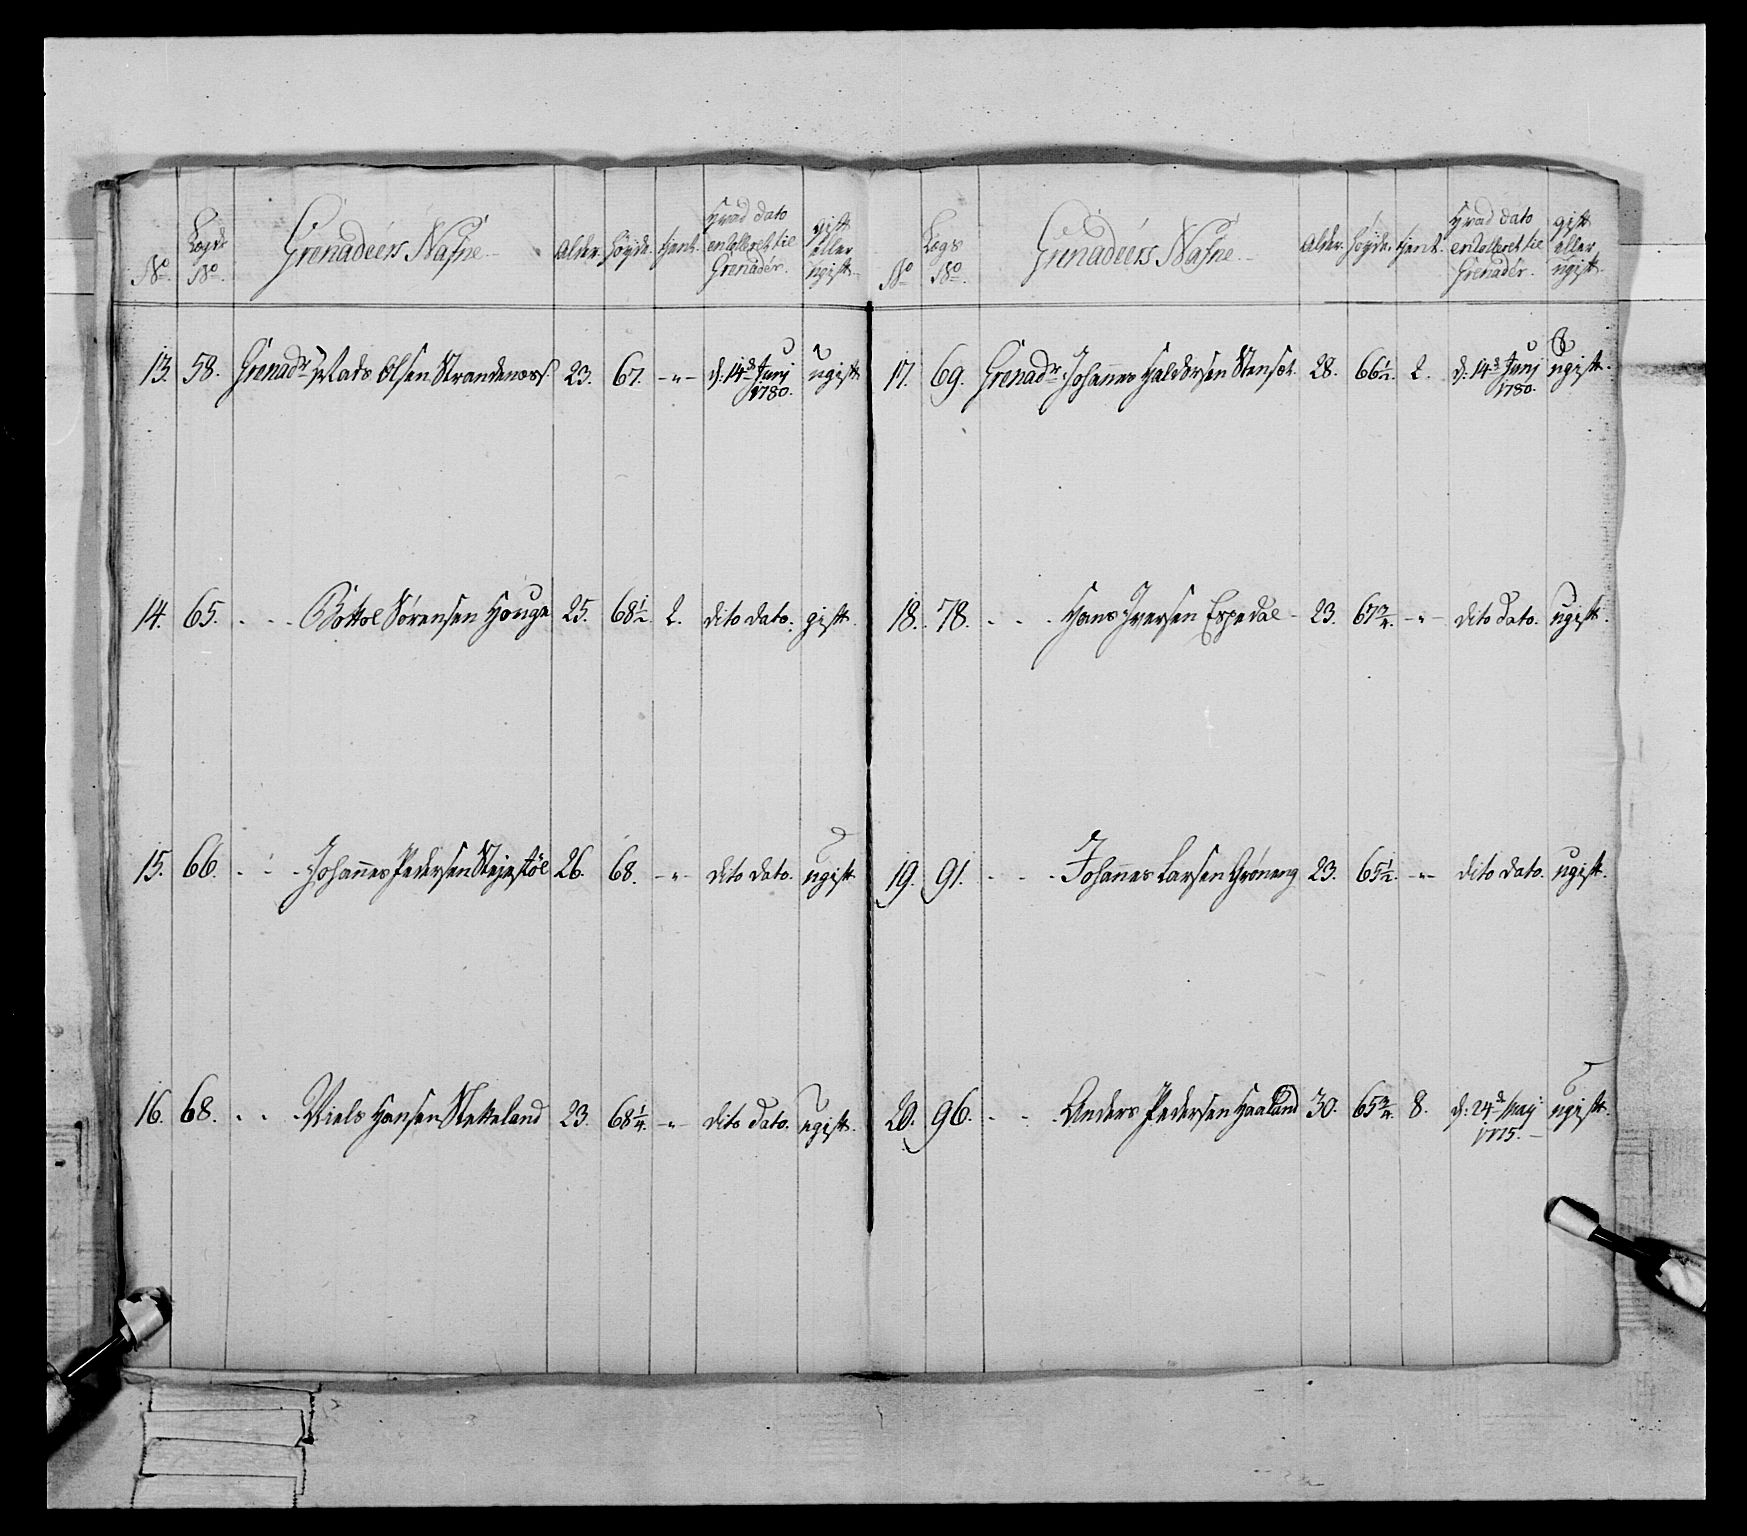 No. Lægds No. Grenadeers Nafne Alder. Høyde. tient. Hvad dato enrolleret til Grenadér. gift eller ugift.
13. 58. Grenadr Mads Olsen Strandenæss. 23. 67. -"- d: 14d Junj 1780. ugift
14. 65. - - - Bottol Sørensen Houge 25. 68½. 2. dito dato. gift
15. 66. - - - Johannes Pedersen 26. 68. -"- dito dato. ugift
16. 68. - - - Niels Hansen Stetteland 23. 68¼. -"- dito dato. ugift.
No. Lægs No. Grenadeers Nafne. Alder. Høyde. tient. Hvad dato enrolleret til Grenadér. gift eller ugift.
17. 69. Grenadr Johannes Haldorsen 28. 66½. 2. d: 14d Junj 1780. ugift.
18. 78. - - - Hans Iversen Espedal - 23. 67¾. -"- dito dato. ugift.
19. 91. - - - Johannes Larsen Grøneng 23. 65½. -"- dito dato. ugift.
20. 96. - - - Anders Pedersen Haaland 30. 65¾. 8. d: 24d May 1775. - ugift.